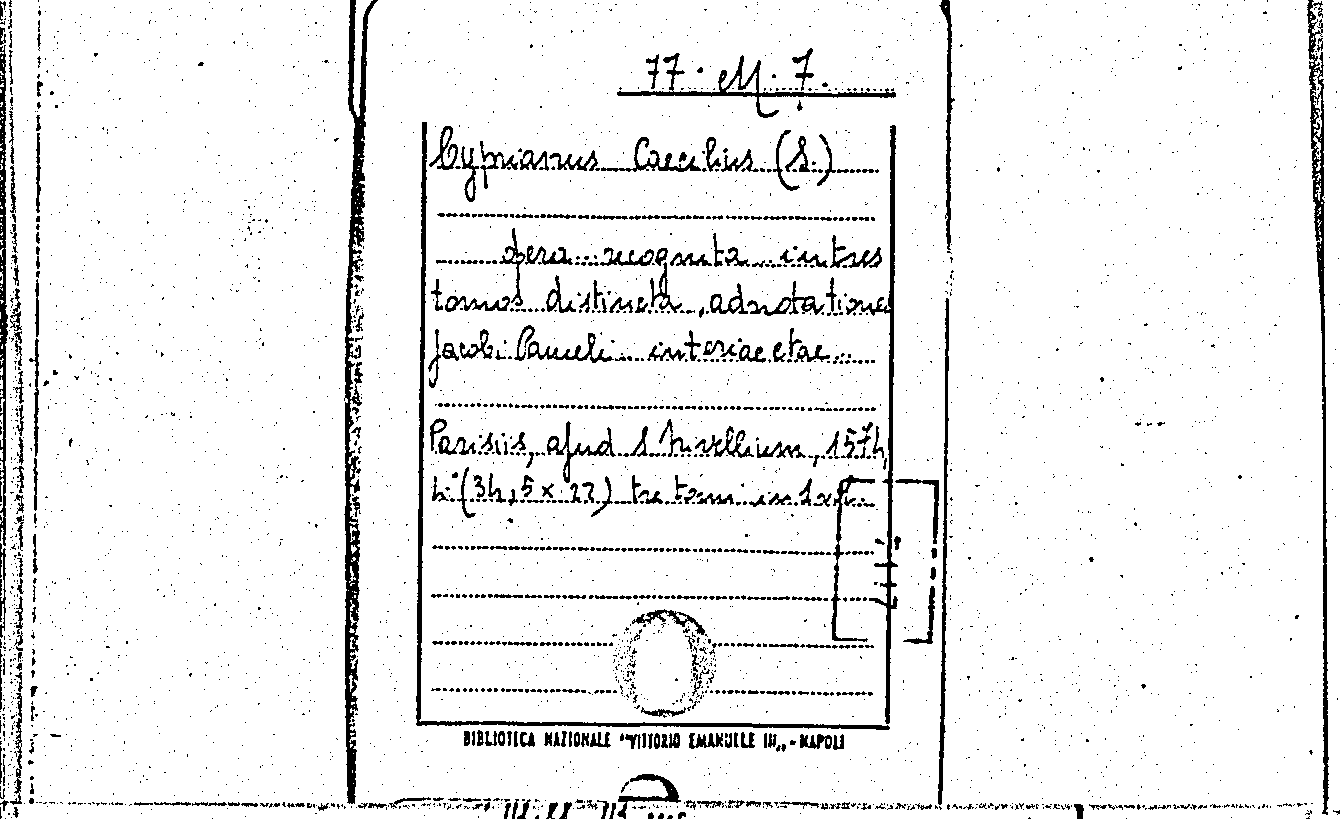 77. M. 7.
Cyprianus Caecilius (S.)
Opera recognita in tres
tomos distincta, adnotationes
Jacobi Pameli interiaectae
Parisiis, apud S. Nivellium, 1574,
4° (34,5 x 22) tre tomi in 1 vol.
BIBLIOTECA NAZIONALE "VITTORIO EMANUELE III„ - NAPOLI